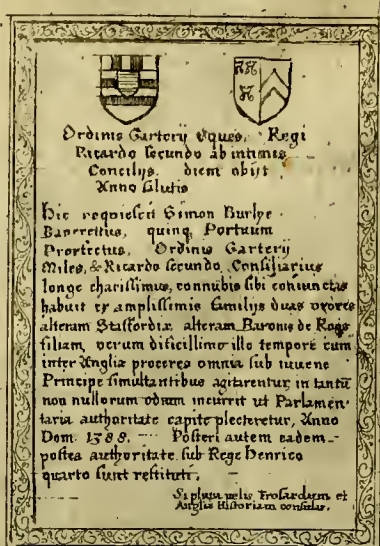 Ordinis Garterij Eques, Regi
Ricardo secundo ab intimis
Concilijs. diem obijt
Anno salutis
Hic requiescit Simon Burlye
Banerettus, quinq Portuum
Præfectus, Ordinis Garterij
Miles, & Ricardo secundo Consiliarius
longe charissimus, connubio sibi coniunctas
habuit ex amplissimis familijs duas vxores
alteram Staffordiæ alteram Baronis de Roos
filiam, verum dificillimo illo tempore cum
inter Angliæ proceres omnia sub iuuene
Principe simultantibus agitarentur, in tantū
non nullorum odium incurrit ut Parlamen-
taria authoritate capite plecteretur, Anno
Dom 1388. Posteri autem eadem
postea authoritate sub Rege Henrico
quarto sunt restituti.
Si plura velis Frosardum et
Angliæ Historiam consulas.